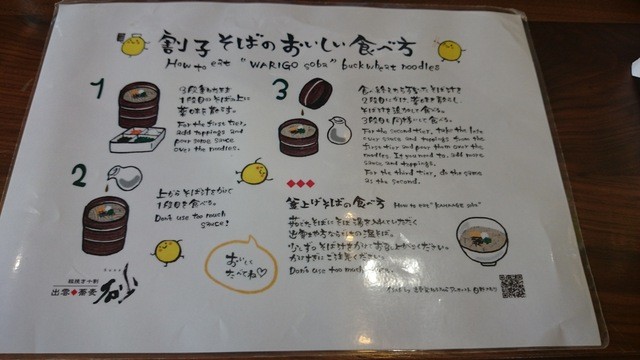 割子そばのおいしい食べ方
How to eat "WARIGO soba" buckwheat noodles
1
3段重ねのまま
1段目のそばの上に
薬味を散らす。
For the first tier,
add toppings and
pour some sauce
over the noodles.
2
上からそばつゆをかけて
1段目を食べる。
Don't use too much
sauce!
3
2段目にうつす、薬味を散らし
そばつゆを追加して食べる。
3段目も同様にして食べる。
For the second tier, take the left
over sauce and toppings from the
first tier and pour them over the
noodles. If you need to, add more
sauce and toppings.
For the third tier, do the same
as the second.
釜上げそばの食べ方 How to eat "KAMAAGE soba"
Don't use too much
おいしく
たべてね♡
出雲蕎麦